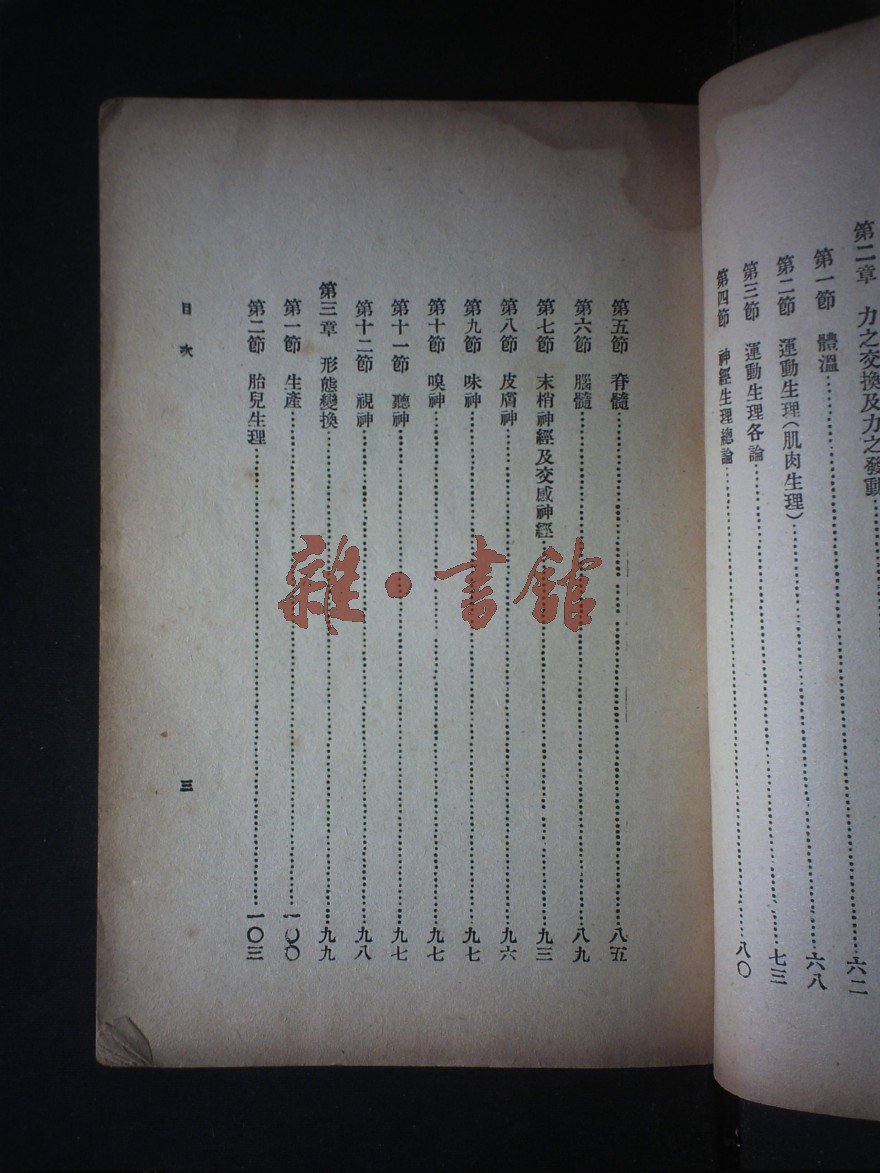 第二章 力之交換及力之發動
第一節 體溫……六二
第二節 運動生理(肌肉生理)……六八
第三節 運動生理各論……七三
第四節 神經生理總論……八〇
第五節 脊髓……八五
第六節 腦髓……八九
第七節 末梢神經及交感神經……九三
第八節 皮膚神……九六
第九節 味神……九七
第十節 嗅神……九七
第十一節 聽神……九七
第十二節 視神……九八
第三章 形態變換……九九
第一節 生產……一〇〇
第二節 胎兒生理……一〇三
目次 三
雜·書館